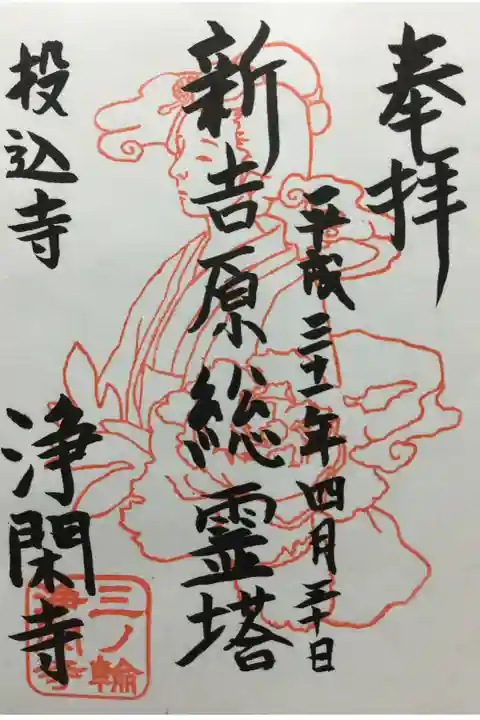 奉拝
平成三十一年四月三十日
新吉原総霊塔
投込寺
浄閑寺
三ノ輪
浄閑寺